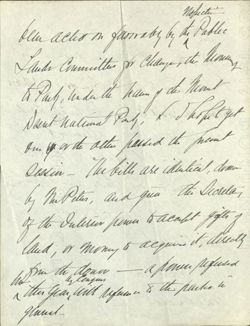 respective
been acted on favorably by the Public
Lands Committee for changing the Monument
to Park, under the name of the Mount
Desert National Park, & I hope to get
one or the other passed the present
session — The bills are identical, drawn
by Mr Peters, and give the Secretary
of the Interior power to accept gifts of
land, or money to acquire it, directly
from the donor — a power refused
by Congress
this other year, with reference to the parks in
general —